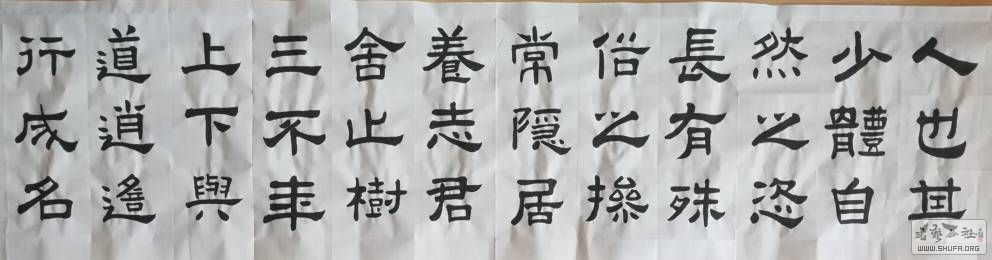 人也其
少體自
然之恣
長有殊
俗之操
常隱居
養志君
舍止樹
三不年
上下與
道逍遙
行成名
WWW.SHUFA.ORG